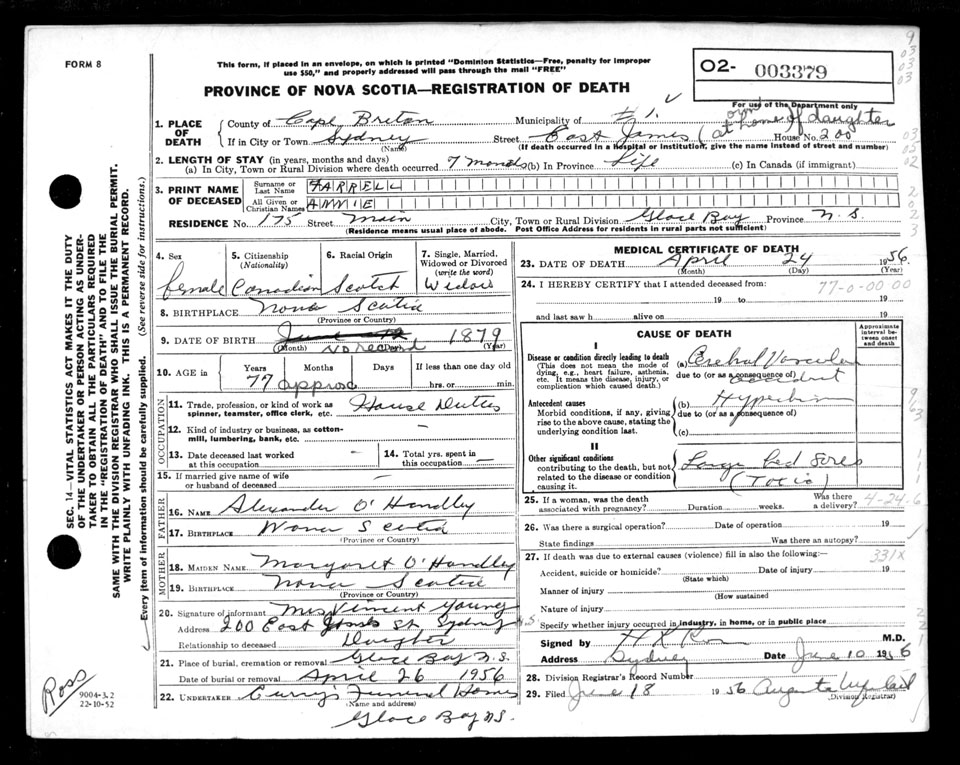 FORM 8
This form, if placed in an envelope, on which is printed "Dominion Statistics—Free, penalty for improper
use $50," and properly addressed will pass through the mail "FREE"
O2- 003379
PROVINCE OF NOVA SCOTIA—REGISTRATION OF DEATH
For use of the Department only
1. PLACE OF DEATH
County of Cape Breton Municipality of # 1
own
If in City or Town Sydney Street East James (at home of daughter House No. 200
(Name) (If death occurred in a hospital or institution, give the name instead of street and number)
2. LENGTH OF STAY (in years, months and days)
(a) In City, Town or Rural Division where death occurred 7 months (b) In Province Life (c) In Canada (if immigrant)
3. PRINT NAME OF DECEASED
Surname or Last Name FARRELL
All Given or Christian Names ANNIE
RESIDENCE No. 175 Street Main City, Town or Rural Division Glace Bay Province N.S.
(Residence means usual place of abode. Post Office Address for residents in rural parts not sufficient)
4. Sex female
5. Citizenship (Nationality) Canadian
6. Racial Origin Scotch
7. Single, Married, Widowed or Divorced (write the word) Widow
8. BIRTHPLACE Nova Scotia
(Province or Country)
9. DATE OF BIRTH June 1879
(Month) no record (Year)
10. AGE in Years Months Days If less than one day old
77 approx hrs. or min.
OCCUPATION
11. Trade, profession, or kind of work as
spinner, teamster, office clerk, etc. House Duties
12. Kind of industry or business, as cotton-
mill, lumbering, bank, etc. —
13. Date deceased last worked
at this occupation —
14. Total yrs. spent in
this occupation —
15. If married give name of wife
or husband of deceased —
FATHER
16. NAME Alexander O'Handley
17. BIRTHPLACE Nova Scotia
(Province or Country)
MOTHER
18. MAIDEN NAME Margaret O'Handley
19. BIRTHPLACE Nova Scotia
(Province or Country)
20. Signature of informant Mrs Vincent Young
Address 200 East James St. Sydney N.S.
Relationship to deceased Daughter
21. Place of burial, cremation or removal Glace Bay N.S.
Date of burial or removal April 26 1956
22. UNDERTAKER Curry's Funeral Home
(Name and address)
Glace Bay N.S.
MEDICAL CERTIFICATE OF DEATH
23. DATE OF DEATH April 24 1956
(Month) (Day) (Year)
24. I HEREBY CERTIFY that I attended deceased from:
77-0-00 00
19 to 19
and last saw h alive on 19
CAUSE OF DEATH
Approximate interval between onset and death
I
Disease or condition directly leading to death
(This does not mean the mode of
dying, e.g., heart failure, asthenia,
etc. It means the disease, injury, or
complication which caused death.)
(a) Cerebral Vascular
due to (or as a consequence of) accident
Antecedent causes
Morbid conditions, if any, giving
rise to the above cause, stating the
underlying condition last.
(b)
due to (or as a consequence of)
(c)
II
Other significant conditions
contributing to the death, but not
related to the disease or condition
causing it.
Large bed sores
(Toxic)
25. If a woman, was the death
associated with pregnancy? Duration weeks. Was there a delivery? 4-24-6
26. Was there a surgical operation? Date of operation 19
State findings Was there an autopsy?
27. If death was due to external causes (violence) fill in also the following:— 331X
Accident, suicide or homicide? Date of injury 19
(State which)
Manner of injury
(How sustained)
Nature of injury
Specify whether injury occurred in industry, in home, or in public place
Signed by M.D.
Address Sydney Date June 10 1956
28. Division Registrar's Record Number
29. Filed June 18 1956 Augusta
(Division Registrar)
SEC. 14—VITAL STATISTICS ACT MAKES IT THE DUTY
OF THE UNDERTAKER OR PERSON ACTING AS UNDER-
TAKER TO OBTAIN ALL THE PARTICULARS REQUIRED
IN THE "REGISTRATION OF DEATH" AND TO FILE THE
SAME WITH THE DIVISION REGISTRAR WHO SHALL ISSUE THE BURIAL PERMIT.
WRITE PLAINLY WITH UNFADING INK. THIS IS A PERMANENT RECORD.
Every item of information should be carefully supplied. (See reverse side for instructions.)
Ross
9004-3.2
22-10-52